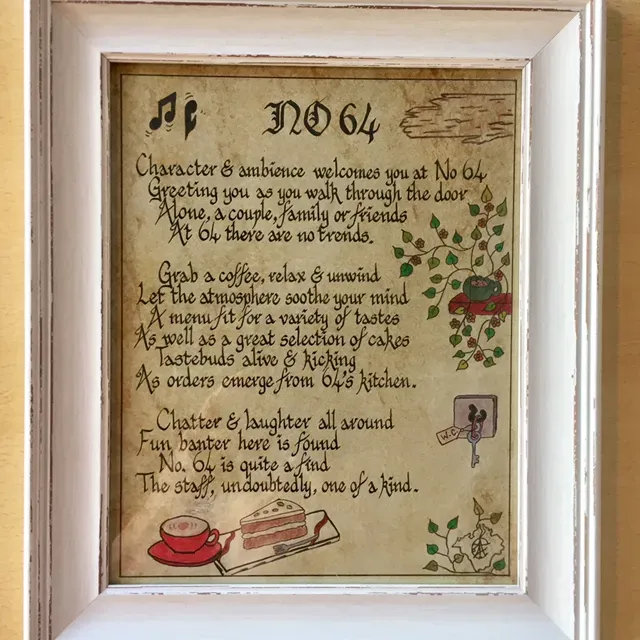 NO 64
Character & ambience welcomes you at No 64
Greeting you as you walk through the door
Alone, a couple, family or friends
At 64 there are no trends.
Grab a coffee, relax & unwind
Let the atmosphere soothe your mind
A menu fit for a variety of tastes
As well as a great selection of cakes
Tastebuds alive & kicking
As orders emerge from 64's kitchen.
Chatter & laughter all around
Fun banter here is found
No. 64 is quite a find
The staff, undoubtedly, one of a kind.
W.C